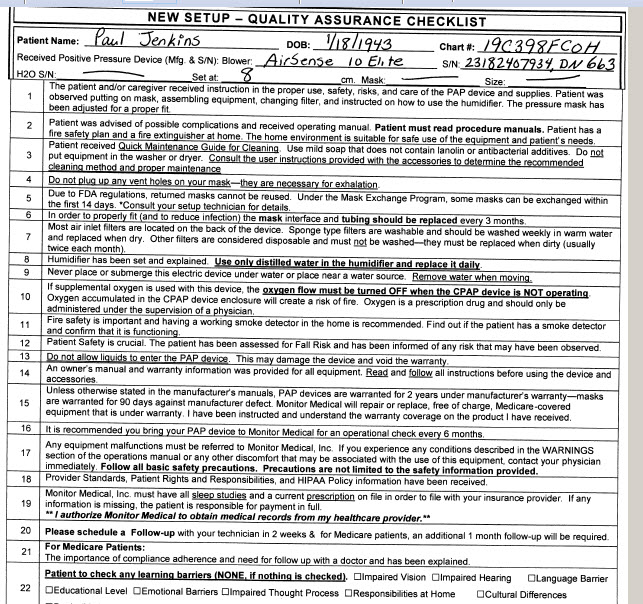 NEW SETUP – QUALITY ASSURANCE CHECKLIST
Patient Name: Paul Jenkins DOB: 1/18/1943 Chart #: 19C398FCOH
Received Positive Pressure Device (Mfg. & S/N): Blower: AirSense 10 Elite S/N: 23182407934, DN 663
H2O S/N: Set at: 8 cm. Mask: Size:
1 The patient and/or caregiver received instruction in the proper use, safety, risks, and care of the PAP device and supplies. Patient was
observed putting on mask, assembling equipment, changing filter, and instructed on how to use the humidifier. The pressure mask has
been adjusted for a proper fit.
2 Patient was advised of possible complications and received operating manual. Patient must read procedure manuals. Patient has a
fire safety plan and a fire extinguisher at home. The home environment is suitable for safe use of the equipment and patient's needs.
3 Patient received Quick Maintenance Guide for Cleaning. Use mild soap that does not contain lanolin or antibacterial additives. Do not
put equipment in the washer or dryer. Consult the user instructions provided with the accessories to determine the recommended
cleaning method and proper maintenance
4 Do not plug up any vent holes on your mask—they are necessary for exhalation.
5 Due to FDA regulations, returned masks cannot be reused. Under the Mask Exchange Program, some masks can be exchanged within
the first 14 days. *Consult your setup technician for details.
6 In order to properly fit (and to reduce infection) the mask interface and tubing should be replaced every 3 months.
7 Most air inlet filters are located on the back of the device. Sponge type filters are washable and should be washed weekly in warm water
and replaced when dry. Other filters are considered disposable and must not be washed—they must be replaced when dirty (usually
twice each month).
8 Humidifier has been set and explained. Use only distilled water in the humidifier and replace it daily.
9 Never place or submerge this electric device under water or place near a water source. Remove water when moving.
10 If supplemental oxygen is used with this device, the oxygen flow must be turned OFF when the CPAP device is NOT operating.
Oxygen accumulated in the CPAP device enclosure will create a risk of fire. Oxygen is a prescription drug and should only be
administered under the supervision of a physician.
11 Fire safety is important and having a working smoke detector in the home is recommended. Find out if the patient has a smoke detector
and confirm that it is functioning.
12 Patient Safety is crucial. The patient has been assessed for Fall Risk and has been informed of any risk that may have been observed.
13 Do not allow liquids to enter the PAP device. This may damage the device and void the warranty.
14 An owner's manual and warranty information was provided for all equipment. Read and follow all instructions before using the device and
accessories.
15 Unless otherwise stated in the manufacturer's manuals, PAP devices are warranted for 2 years under manufacturer's warranty—masks
are warranted for 90 days against manufacturer defect. Monitor Medical will repair or replace, free of charge, Medicare-covered
equipment that is under warranty. I have been instructed and understand the warranty coverage on the product I have received.
16 It is recommended you bring your PAP device to Monitor Medical for an operational check every 6 months.
17 Any equipment malfunctions must be referred to Monitor Medical, Inc. If you experience any conditions described in the WARNINGS
section of the operations manual or any other discomfort that may be associated with the use of this equipment, contact your physician
immediately. Follow all basic safety precautions. Precautions are not limited to the safety information provided.
18 Provider Standards, Patient Rights and Responsibilities, and HIPAA Policy information have been received.
19 Monitor Medical, Inc. must have all sleep studies and a current prescription on file in order to file with your insurance provider. If any
information is missing, the patient is responsible for payment in full.
** I authorize Monitor Medical to obtain medical records from my healthcare provider.**
20 Please schedule a Follow-up with your technician in 2 weeks & for Medicare patients, an additional 1 month follow-up will be required.
21 For Medicare Patients:
The importance of compliance adherence and need for follow up with a doctor and has been explained.
22 Patient to check any learning barriers (NONE, if nothing is checked). ☐Impaired Vision ☐Impaired Hearing ☐Language Barrier
☐Educational Level ☐Emotional Barriers ☐Impaired Thought Process ☐Responsibilities at Home ☐Cultural Differences